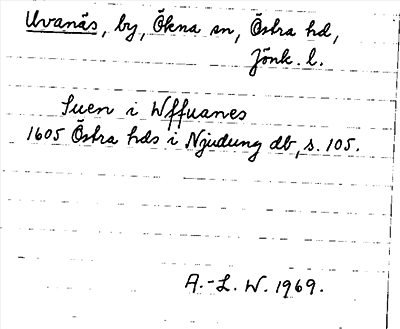 Uvanäs, by, Ökna sn, Östra hd,
Jönk. l.
Suen i Wffuanes
1605 Östra hds i Njudung db, s. 105.
A.-L. W. 1969.